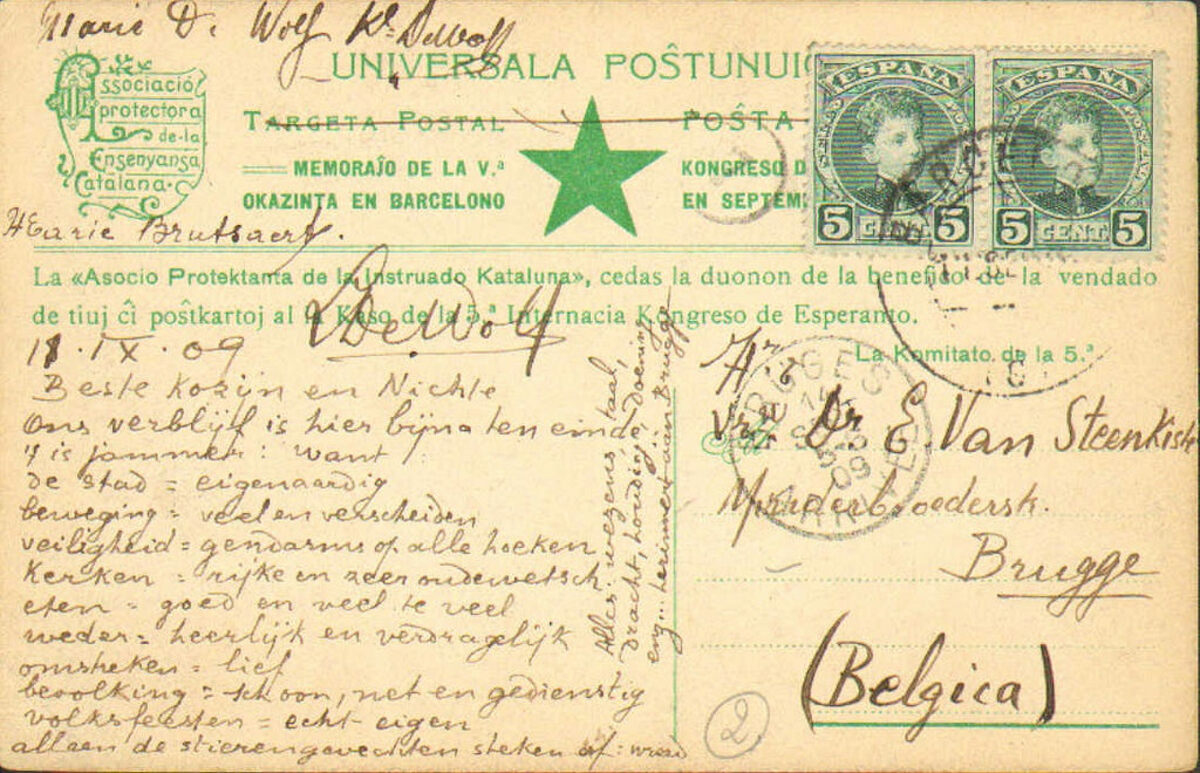 Marie D. Wolf K. DeWolf
UNIVERSALA POŜTUNUIĜ
Associació
Protectora
de-la
Ensenyansa
Catalana
TARGETA POSTAL
POŜTA
MEMORAĴO DE LA V.ª
KONGRESO D
OKAZINTA EN BARCELONO
EN SEPTEM
ESPAÑA
5 CENT. 5
ESPAÑA
5 CENT. 5
Marie Brutsaert.
La «Asocio Protektanta de la Instruado Kataluna», cedas la duonon de la benefico de la vendado
de tiuj ĉi poŝtkartoj al la Kaso de la 5.ª Internacia Kongreso de Esperanto.
La Komitato de la 5.ª
DeWolf
11.IX.09
Beste Kozijn en Nichte
Ons verblijf is hier bijna ten einde
't is jammer: want
de stad = eigenaardig
beweging = veel en verscheiden
veiligheid = gendarms op alle hoeken
Kerken = rijke en zeer ouderwetsch
eten = goed en veel te veel
weder = heerlijk en verdragelijk
omstreken = lief
bevolking = schoon, net en gedienstig
volksfeesten = echt eigen
alleen de stierengevechten steken af: wreed
Alles: wezens, taal,
dracht, houding, doening
enz... herinnert aan Brugge
BRUGES
14
SEPT
09
Hr &
Vr. Dr E. Van Steenkist
Minderbroedersk.
Brugge
(Belgica)
2